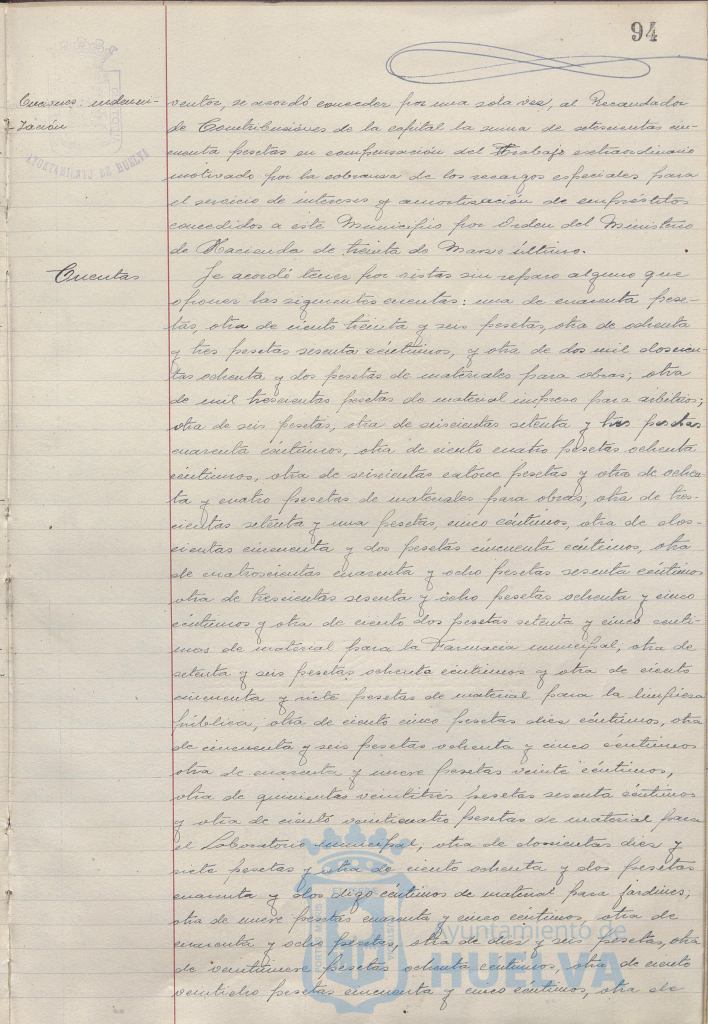 94
AYUNTAMIENTO DE HUELVA
indemni-
zación
ventor, se acordó conceder por una sola vez, al Recaudador
de Contribuciones de la capital la suma de setecientas cin-
cuenta pesetas en compensación del Trabajo extraordinario
motivado por la cobranza de los recargos especiales para
el servicio de intereses y amortización de empréstitos
concedidos a este Municipio por Orden del Ministerio
de Hacienda de treinta de Marzo último.
Cuentas
Se acordó tener por vistas sin reparo alguno que
oponer las siguientes cuentas: una de cuarenta pese-
tas, otra de ciento treinta y seis pesetas, otra de ochenta
y tres pesetas sesenta céntimos, y otra de dos mil doscien-
tas ochenta y dos pesetas de materiales para obras; otra
de mil trescientas pesetas de material impreso para arbitrios;
otra de seis pesetas, otra de seiscientas setenta y tres pesetas
cuarenta céntimos, otra de ciento cuatro pesetas ochenta
céntimos, otra de seiscientas catorce pesetas y otra de ochen-
ta y cuatro pesetas de materiales para obras, otra de tres-
cientas setenta y una pesetas, cinco céntimos, otra de dos-
cientas cincuenta y dos pesetas cincuenta céntimos, otra
de cuatroscientas cuarenta y ocho pesetas sesenta céntimos
otra de trescientas sesenta y ocho pesetas ochenta y cinco
céntimos y otra de ciento dos pesetas setenta y cinco cénti-
mos de material para la Farmacia municipal, otra de
setenta y seis pesetas ochenta céntimos y otra de ciento
cincuenta y siete pesetas de material para la limpieza
pública, otra de ciento cinco pesetas diez céntimos, otra
de cincuenta y seis pesetas ochenta y cinco céntimos
otra de cuarenta y nueve pesetas veinte céntimos,
otra de quinientas veintitrés pesetas sesenta céntimos
y otra de ciento veinticuatro pesetas de material para
el Laboratorio municipal, otra de doscientas diez y
siete pesetas y otra de ciento ochenta y dos pesetas
cuarenta y dos digo céntimos de material para jardines;
otra de nueve pesetas cuarenta y cinco céntimos, otra de
cuarenta y ocho pesetas, otra de diez y seis pesetas, otra
de veintinueve pesetas ochenta céntimos, otra de ciento
veintiocho pesetas cincuenta y cinco céntimos, otra de
Ayuntamiento de
HUELVA